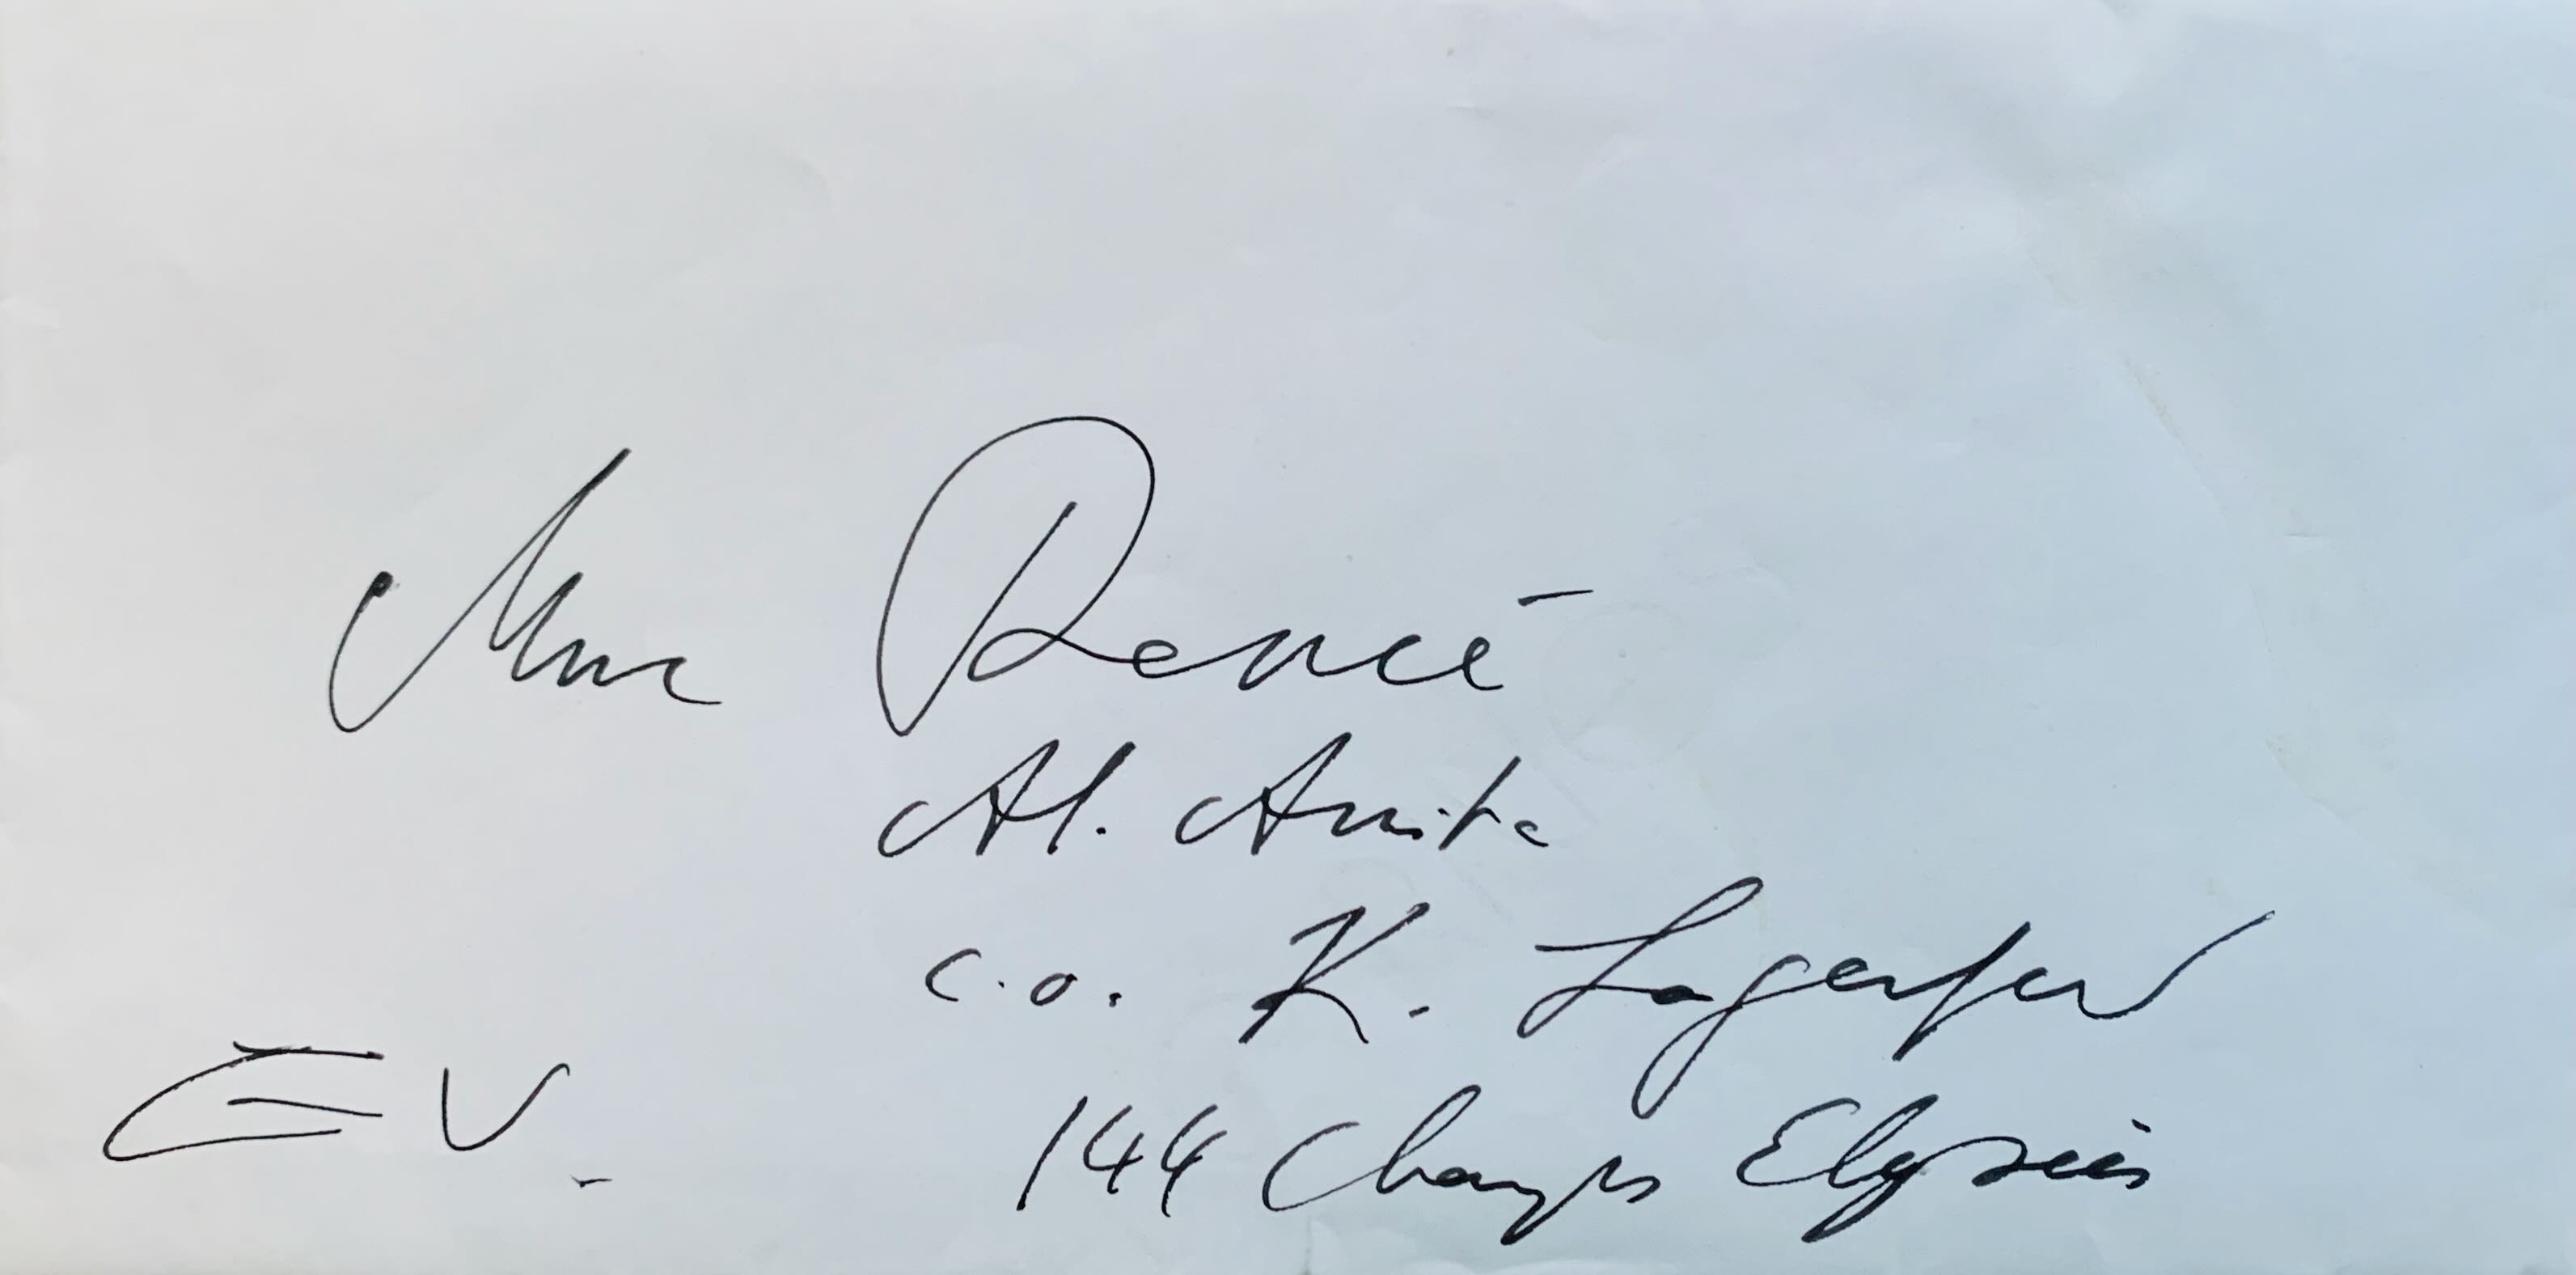 Mme Renée
At. Anita
c.o. K. Lagerfeld
144 Champs Elysées
EV.